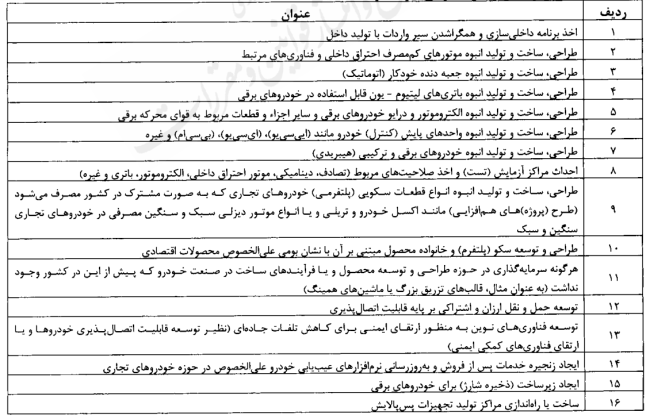 ردیف عنوان
۱ اخذ برنامه داخلی‌سازی و همگراشدن سیر واردات با تولید داخل
۲ طراحی، ساخت و تولید انبوه موتورهای کم‌مصرف احتراق داخلی و فناوری‌های مرتبط
۳ طراحی، ساخت و تولید انبوه جعبه دنده خودکار (اتوماتیک)
۴ طراحی، ساخت و تولید انبوه باتری‌های لیتیوم - یون قابل استفاده در خودروهای برقی
۵ طراحی، ساخت و تولید انبوه الکتروموتور و درایو خودروهای برقی و سایر اجزاء و قطعات مربوط به قوای محرکه برقی
۶ طراحی، ساخت و تولید انبوه واحدهای پایش (کنترل) خودرو مانند (ایی‌سی‌یو)، (ای‌سی‌یو)، (بی‌سی‌ام) و غیره
۷ طراحی، ساخت و تولید انبوه خودروهای برقی و ترکیبی (هیبریدی)
۸ احداث مراکز آزمایش (تست) و اخذ صلاحیت‌های مربوط (تصادف، دینامیکی، موتور احتراق داخلی، الکتروموتور، باتری و غیره)
۹ طراحی، ساخت و تولید انبوه انواع قطعات سکویی (پلتفرمی) خودروهای تجاری که به صورت مشترک در کشور مصرف می‌شود
(طرح (پروژه)های هم‌افزایی) مانند اکسل خودرو و تریلی و یا انواع موتور دیزلی سبک و سنگین مصرفی در خودروهای تجاری
سنگین و سبک
۱۰ طراحی و توسعه سکو (پلتفرم) و خانواده محصول مبتنی بر آن با نشان بومی علی‌الخصوص محصولات اقتصادی
۱۱ هرگونه سرمایه‌گذاری در حوزه طراحی و توسعه محصول و یا فرآیندهای ساخت در صنعت خودرو که پیش از این در کشور وجود
نداشت (به عنوان مثال، قالب‌های تزریق بزرگ یا ماشین‌های همینگ)
۱۲ توسعه حمل و نقل ارزان و اشتراکی بر پایه قابلیت اتصال‌پذیری
۱۳ توسعه فناوری‌های نوین به منظور ارتقای ایمنی برای کاهش تلفات جاده‌ای (نظیر توسعه قابلیت اتصال‌پذیری خودروها و یا
ارتقای فناوری‌های کمکی ایمنی)
۱۴ ایجاد زنجیره خدمات پس از فروش و به‌روزرسانی نرم‌افزارهای عیب‌یابی خودرو علی‌الخصوص در حوزه خودروهای تجاری
۱۵ ایجاد زیرساخت (ذخیره شارژ) برای خودروهای برقی
۱۶ ساخت یا راه‌اندازی مراکز تولید تجهیزات پس‌پالایش